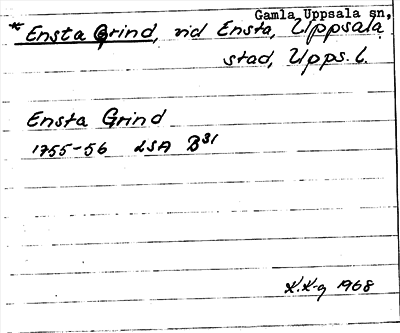 Gamla Uppsala sn,
* Ensta Grind, vid Ensta, Uppsala
stad, Upps. l.
Ensta Grind
1755-56 LSA B31
K.K-g 1968